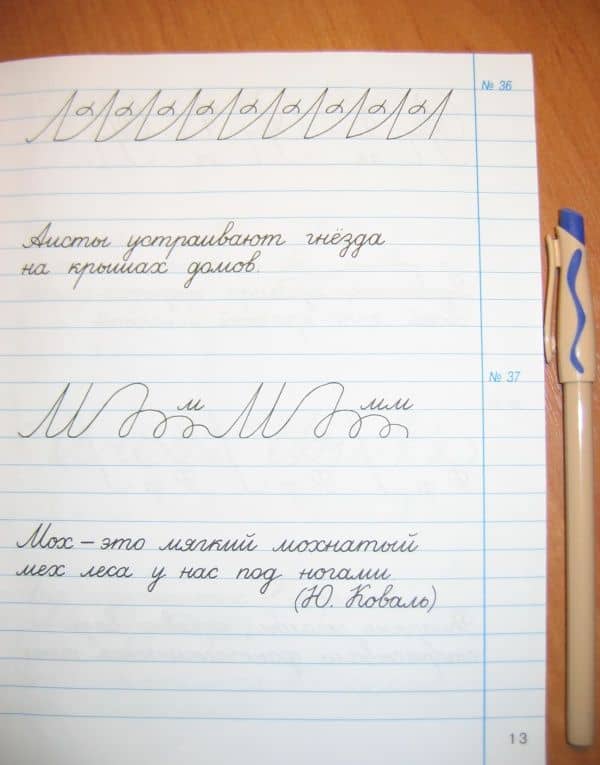 № 36
Аисты устраивают гнёзда
на крышах домов.
№ 37
М м М мм
Мох – это мягкий мохнатый
мех леса у нас под ногами.
(Ю. Коваль)
13